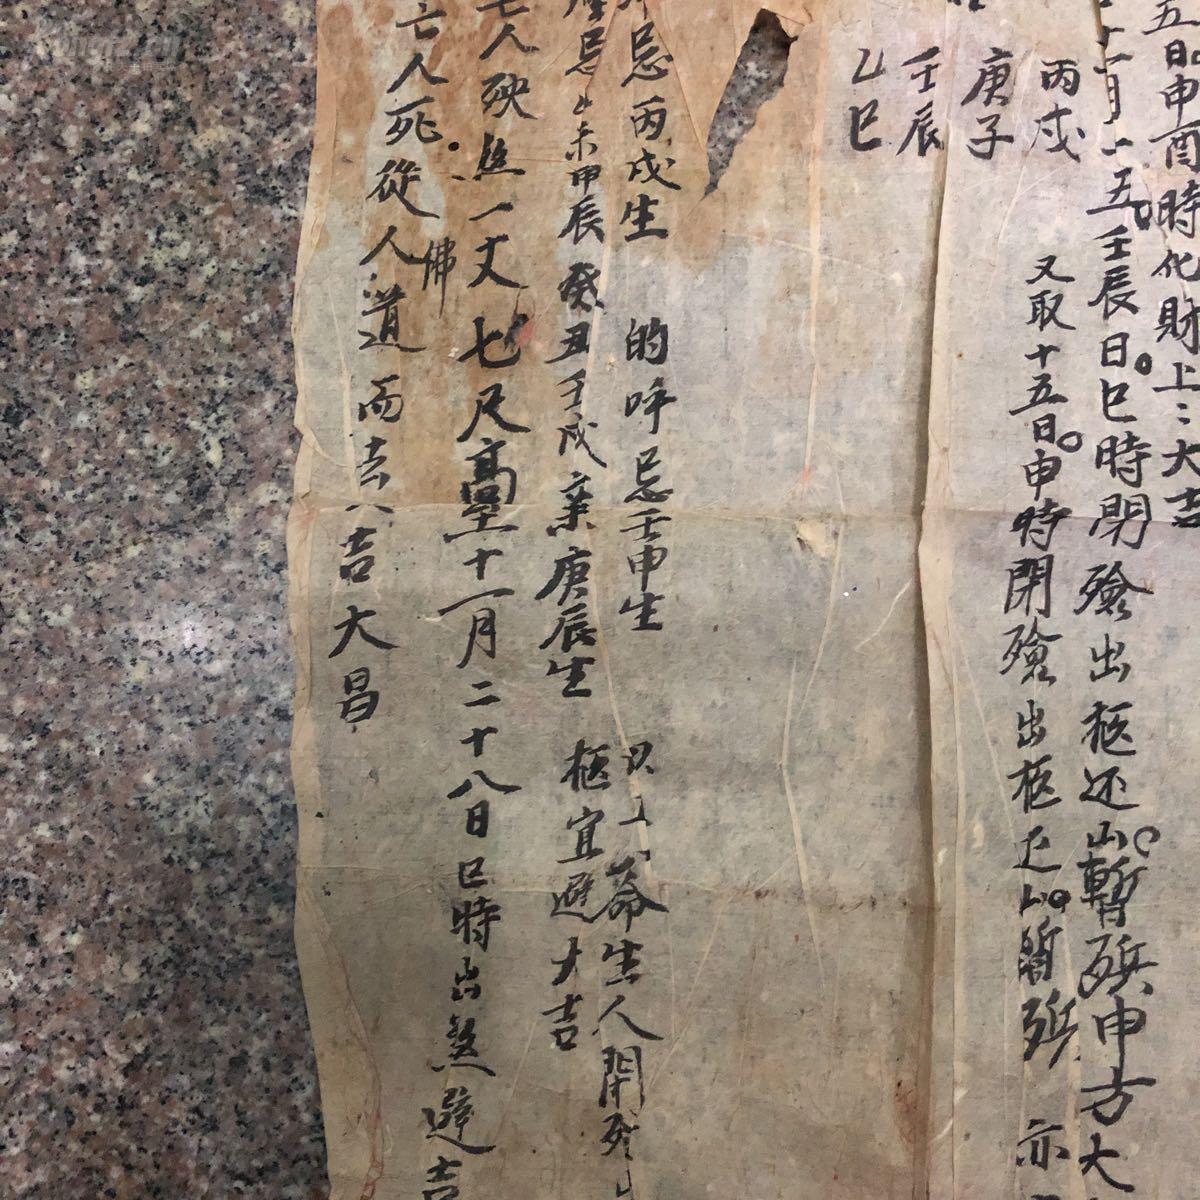 五日申酉時化財上上大吉
十一月十五壬辰日巳時閉殮出柩还山暫殡申方大
丙戌 又取十五日申時閉殮出柩还山暫殡 亦
庚子
壬辰
乙巳
忌丙戌生 的呼忌壬申生 命生人閉殮
忌 未甲辰 癸丑壬戌辛 庚辰生 柩宜避大吉
亡人殃煞一丈七尺高 十一月二十八日巳時出煞避吉
佛
亡人死從人道而去 吉大昌